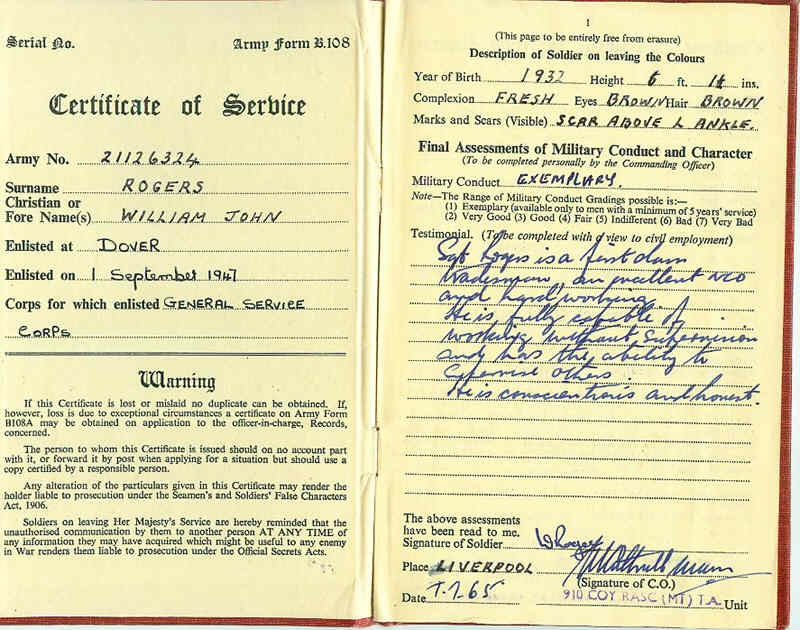 Serial No. Army Form B.108
Certificate of Service
Army No. 21126324
Surname ROGERS
Christian or
Fore Name(s) WILLIAM JOHN
Enlisted at DOVER
Enlisted on 1 September 1947
Corps for which enlisted GENERAL SERVICE
CORPS
Warning
If this Certificate is lost or mislaid no duplicate can be obtained. If,
however, loss is due to exceptional circumstances a certificate on Army Form
B108A may be obtained on application to the officer-in-charge, Records,
concerned.
The person to whom this Certificate is issued should on no account part
with it, or forward it by post when applying for a situation but should use a
copy certified by a responsible person.
Any alteration of the particulars given in this Certificate may render the
holder liable to prosecution under the Seamen's and Soldiers' False Characters
Act, 1906.
Soldiers on leaving Her Majesty's Service are hereby reminded that the
unauthorised communication by them to another person AT ANY TIME of
any information they may have acquired which might be useful to any enemy
in War renders them liable to prosecution under the Official Secrets Acts.
1
(This page to be entirely free from erasure)
Description of Soldier on leaving the Colours
Year of Birth 1932 Height 6 ft. 1½ ins.
Complexion FRESH Eyes BROWN Hair BROWN
Marks and Scars (Visible) SCAR ABOVE L ANKLE.
Final Assessments of Military Conduct and Character
(To be completed personally by the Commanding Officer)
Military Conduct EXEMPLARY.
Note—The Range of Military Conduct Gradings possible is:—
(1) Exemplary (available only to men with a minimum of 5 years' service)
(2) Very Good (3) Good (4) Fair (5) Indifferent (6) Bad (7) Very Bad
Testimonial. (To be completed with a view to civil employment)
Sgt Rogers is a first class
tradesman, an excellent NCO
and hard working.
He is fully capable of
working without supervision
and has the ability to
supervise others.
He is conscientious and honest.
The above assessments
have been read to me.
Signature of Soldier W Rogers
Place LIVERPOOL
(Signature of C.O.)
Date 7.7.65 910 COY RASC (MT) T.A. Unit